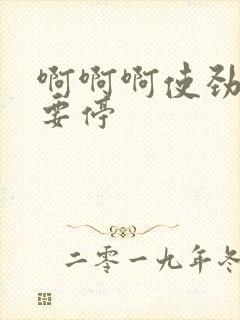 啊啊啊使劲
要停
二零一九年冬